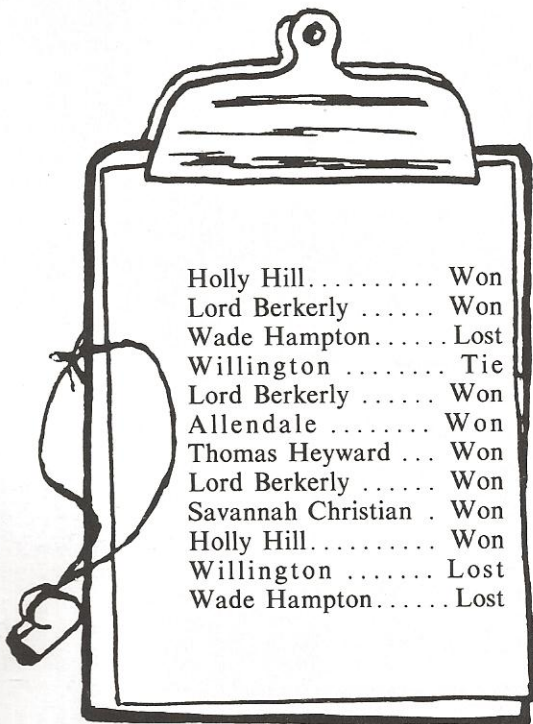 Holly Hill.......... Won
Lord Berkerly ...... Won
Wade Hampton...... Lost
Willington ........ Tie
Lord Berkerly ...... Won
Allendale ........ Won
Thomas Heyward ... Won
Lord Berkerly ...... Won
Savannah Christian . Won
Holly Hill.......... Won
Willington ....... Lost
Wade Hampton...... Lost